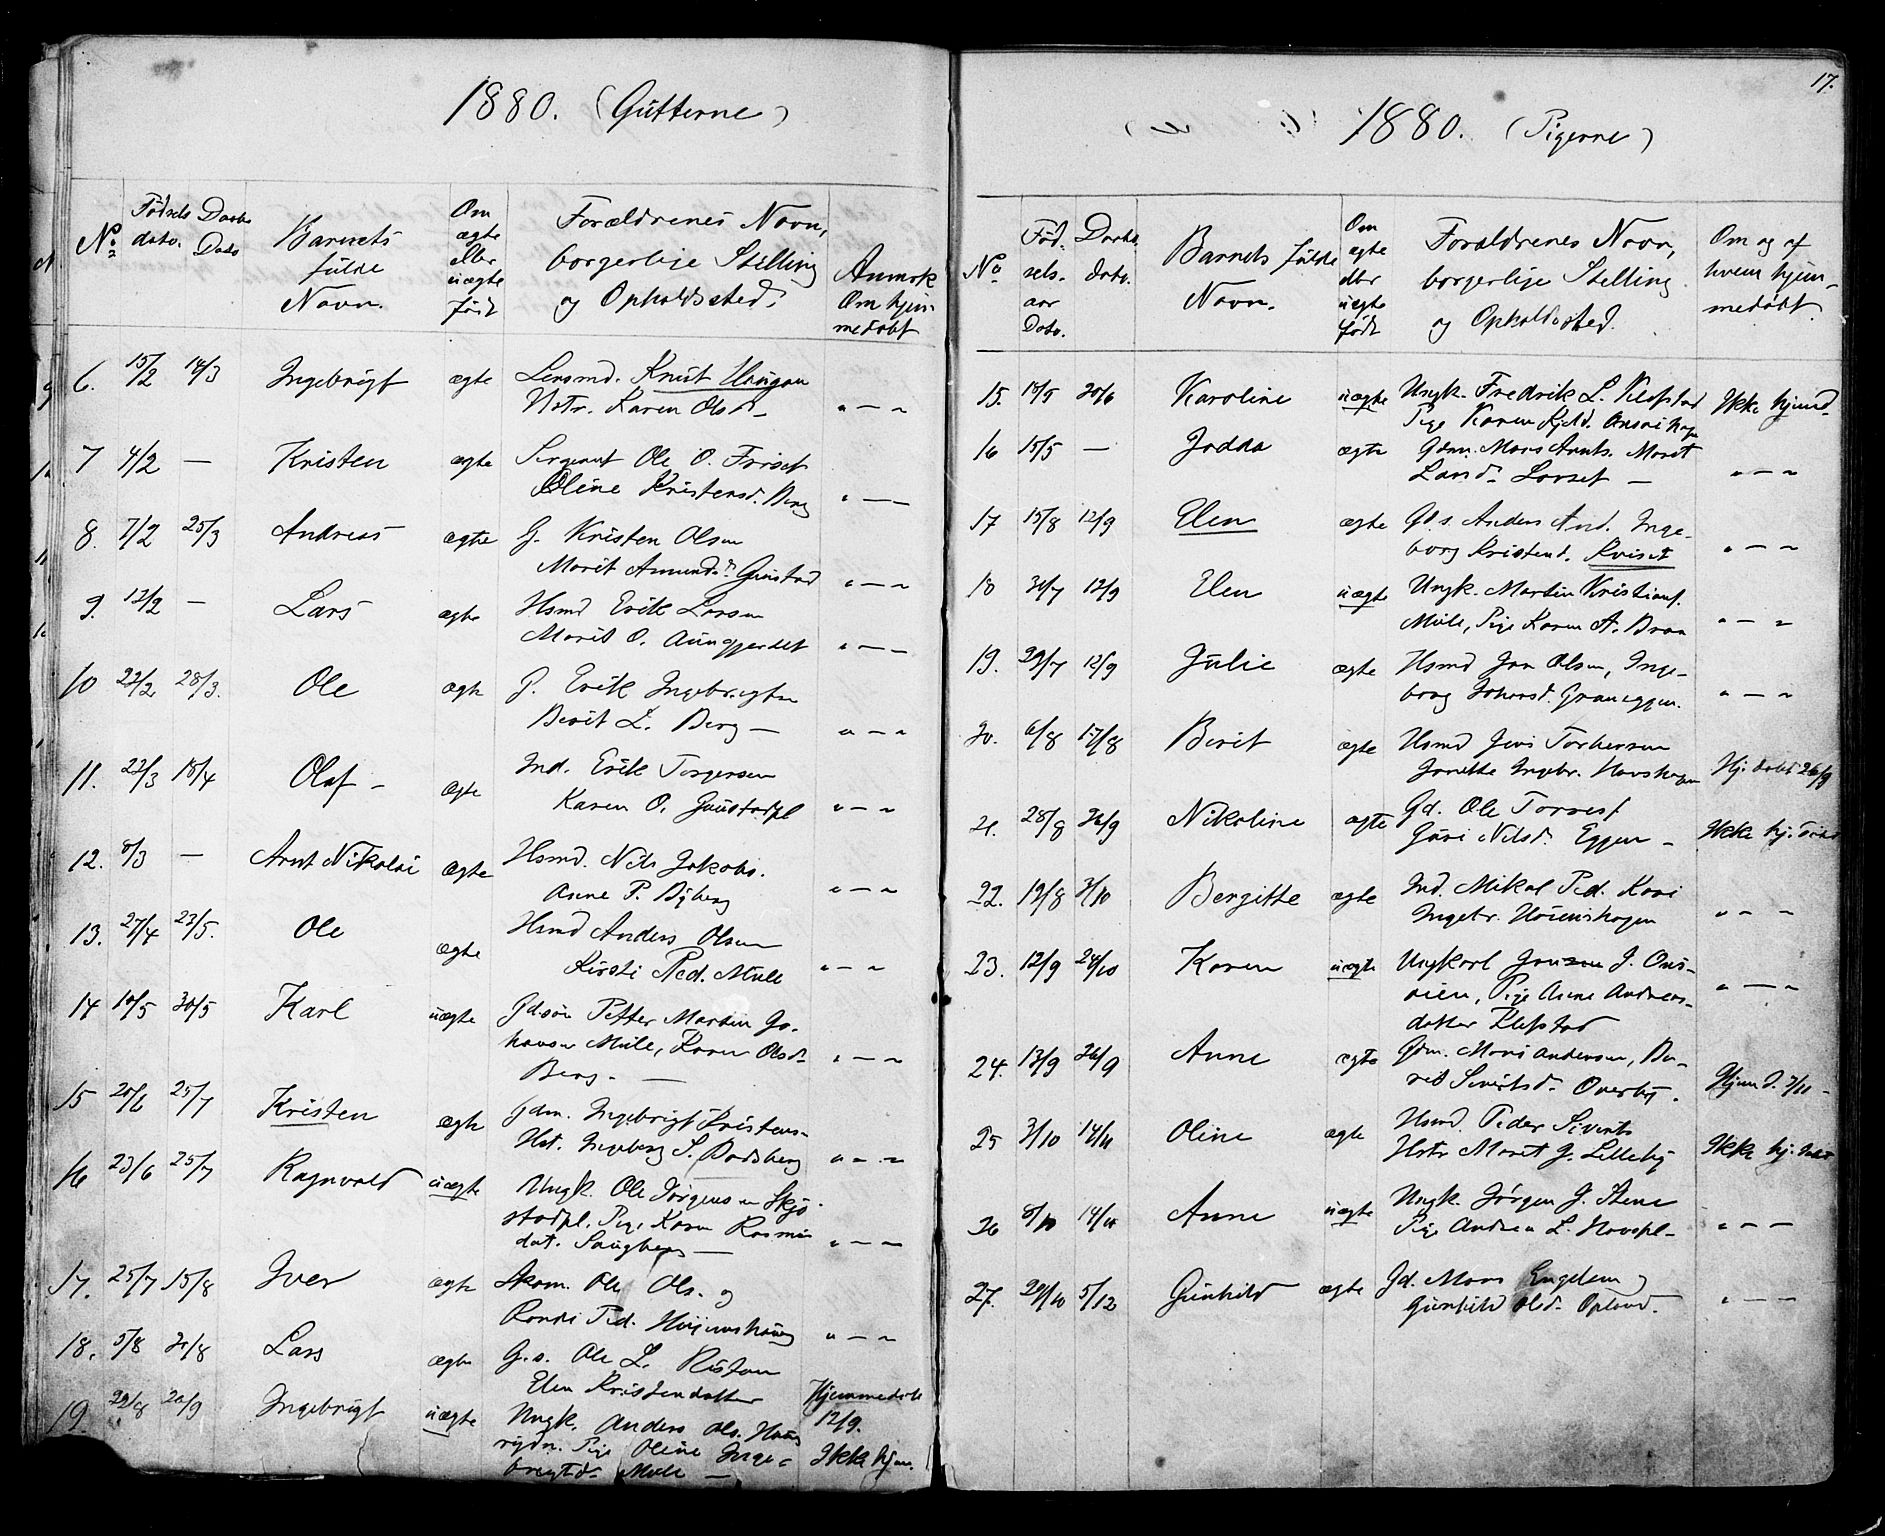 1880. (Gutterne)
No Fødsels dato. Daabs Dato Barnets fulde Navn. Om ægte eller uægte født Forældrenes Navn, borgerlige Stilling og Opholdssted. Anmrk Om hjemmedøbt
6. 15/2 14/3 Ingebrigt ægte Lensmd. Knut Haugan
Hstr. Karen Olsd. " — "
7 4/2 — Kristen ægte Sergeant Ole O. Friset
Oline Kristensd. Berg " — "
8. 7/2 25/3 Andreas ægte G. Kristen Olsen
Marit Amundsd. Gustad " — "
9. 12/2 — Lars ægte Hsmd Erik Larsen
Marit O. Aungjerdet " — "
10 22/2 28/3. Ole ægte G. Erik Ingebrigtsen
Berit L. Berg — " — "
11. 22/3 18/4 Olaf – ægte Ind. Erik Torgersen
Karen O. Gustadpl " — "
12. 8/3 — Arnt Nikolai ægte Hsmd. Nils Jakobs.
Anne P. Byberg " — "
13. 27/4 23/5. Ole ægte Hsmd Anders Olsen
Kirsti Ped. Mule " — "
14 10/5 30/5 Karl uægte Gd.søn Petter Martin Jo-
hansen Mule, Karen Olsd.
Berg. — " — "
15 20/6 25/7 Kristen ægte Gdm. Ingebrigt Kristens-
Hst. Ingeborg S. " — "
16 23/6 25/7 Ragnvald uægte Ungk. Ole Jørgensen Skjø-
stadpl. Pige Karen Rasmus
dat. — " — "
17. 25/7 15/8 Iver ægte Skom. Ole Ols. og
Randi Ped. " — "
18. 5/8 Lars ægte G.s. Ole L.
Elen Kristensdatter Hjemmedøbt
12/9.
19. 22/8 20/9 Ingebrigt uægte Ungk. Anders Ols.
Pige Oline Inge-
brigtsd. Mule — Ikke hjem.
17.
1880. (Pigerne)
No Fødsels- aar Dato. Daabs- dato. Barnets fulde Navn. Om ægte eller uægte født Forældrenes Navn, borgerlige Stilling og Opholdssted. Om og af hvem hjemmedøbt.
15. 18/5 20/6 Karoline uægte Ungk. Fredrik L. Klefstad
Pige Karen Ikke hjemd.
16 15/5 — Jodda ægte Gdm. Mons Arnts. Marit
Larsd. — " — "
17 15/8 12/9 Elen ægte Gd.s. Anders And. Inge-
borg Kristend. " — "
18 31/7 12/9 Elen uægte Ungk. Martin Kristians.
Mule, Pige Karen A. Braa " — "
19. 29/7 12/9 Julie ægte Hsmd Jon Olsen, Inge-
borg Johansd. Graneggen. " — "
20. 6/8 17/8 Berit ægte Hsmd Jens Torbersen
Janetta Ingebr. Havshagen Hj. døbt 26/9
21. 28/8 26/9 Nikoline ægte Gd. Ole Torres.
Guri Nilsd. Eggen – Ikke hj. døbt
22. 19/8 3/10 Bergitte ægte Ind. Mikal Ped. Kari
Ingebr. " — "
23. 12/9 24/10 Karen uægte Ungkarl J.
Pige Anne Andreas-
datter Klefstad " — "
24. 13/9 26/9 Anne ægte Gdm. Mons Andersen, Be-
rit Sivertsd. Overby. Hjem d. 7/11 –
25 3/10 14/11 Oline ægte Hsmd. Peder Siverts
Hstr Marit J. Lilleby Ikke hj. døbt
26 8/10 14/11 Anne uægte Ungk. Jørgen J. Stene
Pige Andrea L. " — "
27. 29/10 5/12 Gunhild ægte Gd. Mons Engelsen og
Gunhild Olsd. Opland. " — "